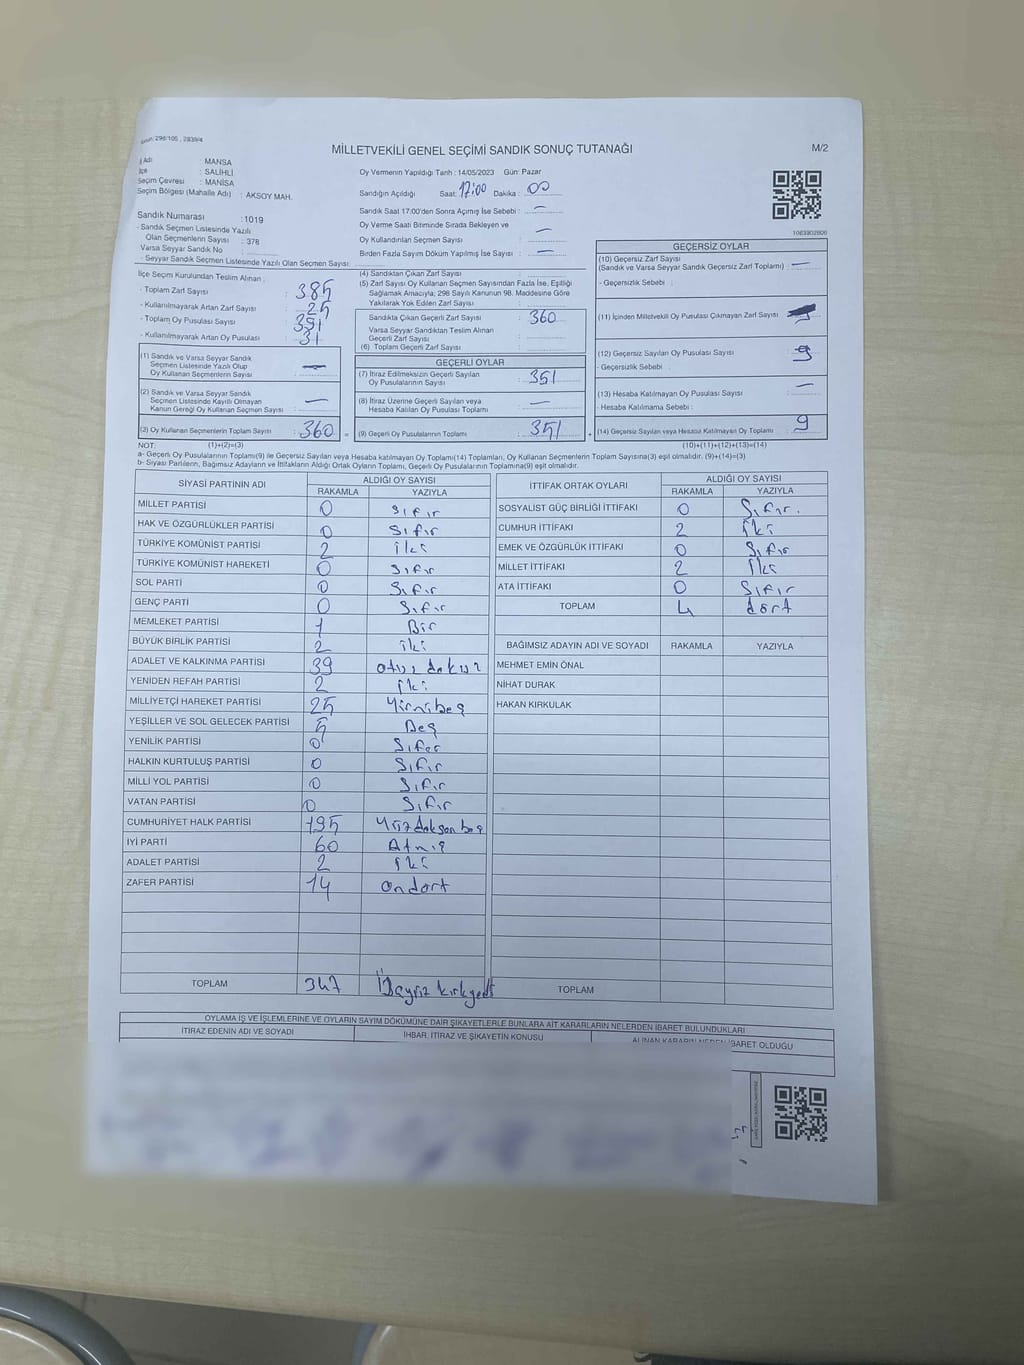 MİLLETVEKİLİ GENEL SEÇİMİ SANDIK SONUÇ TUTANAĞI
M/2
İl Adı : MANİSA
İlçe : SALİHLİ
Seçim Çevresi : MANİSA
Seçim Bölgesi (Mahalle Adı) : AKSOY MAH.
Sandık Numarası : 1019
- Sandık Seçmen Listesinde Yazılı
Olan Seçmenlerin Sayısı : 378
Varsa Seyyar Sandık No :
- Seyyar Sandık Seçmen Listesinde Yazılı Olan Seçmen Sayısı:
Oy Vermenin Yapıldığı Tarih : 14/05/2023 Gün: Pazar
Sandığın Açıldığı Saat: 17:00 Dakika : 00
Sandık Saat 17:00'den Sonra Açılmış İse Sebebi : —
Oy Verme Saati Bitiminde Sırada Bekleyen ve
Oy Kullandırılan Seçmen Sayısı : —
Birden Fazla Sayım Döküm Yapılmış İse Sayısı : —
İlçe Seçim Kurulundan Teslim Alınan :
- Toplam Zarf Sayısı : 385
- Kullanılmayarak Artan Zarf Sayısı : 25
- Toplam Oy Pusulası Sayısı : 391
- Kullanılmayarak Artan Oy Pusulası : 31
(1) Sandık ve Varsa Seyyar Sandık
Seçmen Listesinde Yazılı Olup
Oy Kullanan Seçmenlerin Sayısı : —
(2) Sandık ve Varsa Seyyar Sandık
Seçmen Listesinde Kayıtlı Olmayan
Kanun Gereği Oy Kullanan Seçmen Sayısı : —
(3) Oy Kullanan Seçmenlerin Toplam Sayısı : 360
(4) Sandıktan Çıkan Zarf Sayısı :
(5) Zarf Sayısı Oy Kullanan Seçmen Sayısından Fazla İse, Eşitliği
Sağlamak Amacıyla; 298 Sayılı Kanunun 98. Maddesine Göre
Yakılarak Yok Edilen Zarf Sayısı :
Sandıkta Çıkan Geçerli Zarf Sayısı : 360
Varsa Seyyar Sandıktan Teslim Alınan
Geçerli Zarf Sayısı :
(6) Toplam Geçerli Zarf Sayısı :
GEÇERLİ OYLAR
(7) İtiraz Edilmeksizin Geçerli Sayılan
Oy Pusulalarının Sayısı : 351
(8) İtiraz Üzerine Geçerli Sayılan veya
Hesaba Katılan Oy Pusulası Toplamı : —
(9) Geçerli Oy Pusulalarının Toplamı : 351
GEÇERSİZ OYLAR
(10) Geçersiz Zarf Sayısı
(Sandık ve Varsa Seyyar Sandık Geçersiz Zarf Toplamı) : —
- Geçersizlik Sebebi :
(11) İçinden Milletvekili Oy Pusulası Çıkmayan Zarf Sayısı :
(12) Geçersiz Sayılan Oy Pusulası Sayısı : 9
- Geçersizlik Sebebi
(13) Hesaba Katılmayan Oy Pusulası Sayısı : —
- Hesaba Katılmama Sebebi :
(14) Geçersiz Sayılan veya Hesaba Katılmayan Oy Toplamı : 9
NOT: (1)+(2)=(3) (10)+(11)+(12)+(13)=(14)
a- Geçerli Oy Pusulaları Toplamı(9) ile Geçersiz Sayılan veya Hesaba katılmayan Oy Toplamı(14) Toplamları, Oy Kullanan Seçmenlerin Toplam Sayısına(3) eşit olmalıdır. (9)+(14)=(3)
b- Siyasi Partilerin, Bağımsız Adayların ve İttifakların Aldığı Ortak Oyların Toplamı, Geçerli Oy Pusulalarının Toplamına(9) eşit olmalıdır.
SİYASİ PARTİNİN ADI ALDIĞI OY SAYISI
RAKAMLA YAZIYLA
MİLLET PARTİSİ 0 sıfır
HAK VE ÖZGÜRLÜKLER PARTİSİ 0 sıfır
TÜRKİYE KOMÜNİST PARTİSİ 2 iki
TÜRKİYE KOMÜNİST HAREKETİ 0 sıfır
SOL PARTİ 0 Sıfır
GENÇ PARTİ 0 Sıfır
MEMLEKET PARTİSİ 1 Bir
BÜYÜK BİRLİK PARTİSİ 2 iki
ADALET VE KALKINMA PARTİSİ 39
YENİDEN REFAH PARTİSİ 2 iki
MİLLİYETÇİ HAREKET PARTİSİ 25 Yirmibeş
YEŞİLLER VE SOL GELECEK PARTİSİ 5 Beş
YENİLİK PARTİSİ 0 Sıfır
HALKIN KURTULUŞ PARTİSİ 0 Sıfır
MİLLİ YOL PARTİSİ 0 Sıfır
VATAN PARTİSİ 0 Sıfır
CUMHURİYET HALK PARTİSİ 195
İYİ PARTİ 60 Atmış
ADALET PARTİSİ 2 iki
ZAFER PARTİSİ 14 ondört
TOPLAM 347 Üçyüz kırkyedi
İTTİFAK ORTAK OYLARI ALDIĞI OY SAYISI
RAKAMLA YAZIYLA
SOSYALİST GÜÇ BİRLİĞİ İTTİFAKI 0 Sıfır.
CUMHUR İTTİFAKI 2 iki
EMEK VE ÖZGÜRLÜK İTTİFAKI 0 Sıfır
MİLLET İTTİFAKI 2 iki
ATA İTTİFAKI 0 Sıfır
TOPLAM 4 dört
BAĞIMSIZ ADAYIN ADI VE SOYADI RAKAMLA YAZIYLA
MEHMET EMİN ÖNAL
NİHAT DURAK
HAKAN KIRKULAK
TOPLAM
OYLAMA İŞ VE İŞLEMLERİNE VE OYLARIN SAYIM DÖKÜMÜNE DAİR ŞİKAYETLERLE BUNLARA AİT KARARLARIN NELERDEN İBARET BULUNDUKLARI
İTİRAZ EDENİN ADI VE SOYADI
İHBAR, İTİRAZ VE ŞİKAYETİN KONUSU
ALINAN KARARIN NEDEN İBARET OLDUĞU